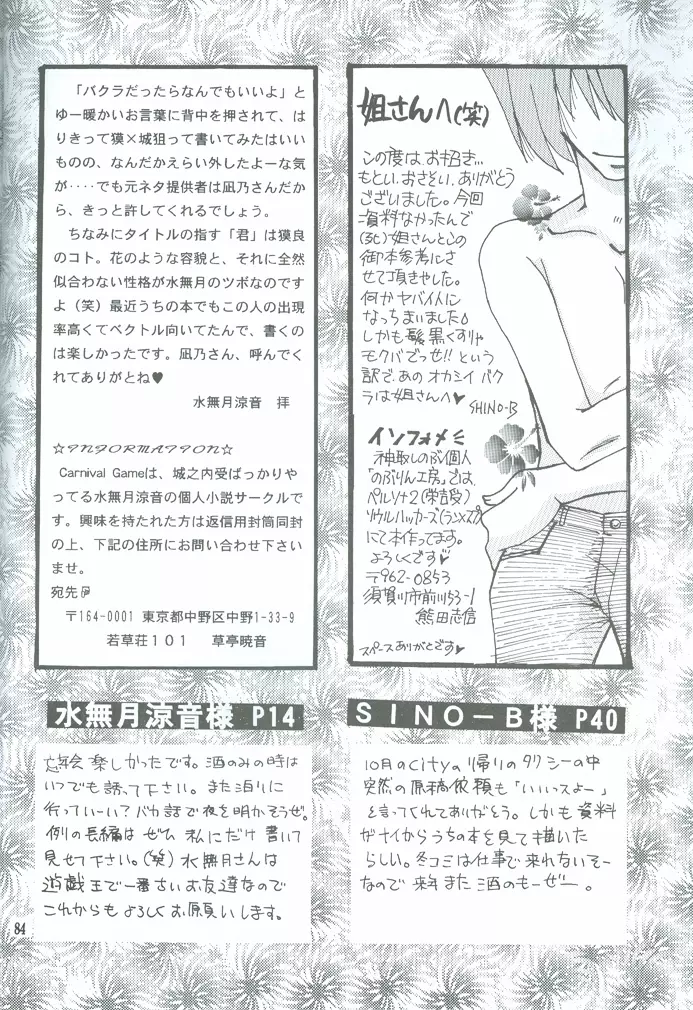 「バクラだったらなんでもいいよ」と
ゆー暖かいお言葉に背中を押されて、は
りきって獏×城狙って書いてみたはいい
ものの、なんだかえらい外したよーな気
が‥‥でも元ネタ提供者は凪乃さんだか
ら、きっと許してくれるでしょう。
ちなみにタイトルの指す「君」は獏良
のコト。花のような容貌と、それに全然
似合わない性格が水無月のツボなのです
よ（笑）最近うちの本でもこの人の出現
率高くてベクトル向いてたんで、書くの
は楽しかったです。凪乃さん、呼んでく
れてありがとね♥
水無月涼音　拝
☆INFORMATION☆
Carnival Gameは、城之内受ばっかりや
ってる水無月涼音の個人小説サークルで
す。興味を持たれた方は返信用封筒同封
の上、下記の住所にお問い合わせ下さい
ませ。
宛先
〒164-0001 東京都中野区中野1-33-9
若草荘１０１　草亭暁音
水無月涼音様 P14
忘年会楽しかったです。酒のみの時は
いつでも誘って下さい。また泊りに
行っていーい?バカ話で夜を明かそうぜ。
例の長編は ぜひ 私にだけ書いて
見せて下さい。(笑) 水無月さんは
遊戯王で一番古いお友達なので
これからもよろしくお願いします。
姐さんへ(笑)
この度は、お招き…
もとい、おさそい、ありがとう
ございました。今回
資料なかったんで
姐さんとこの
御本参考にさ
せて頂きやした。
何かヤバイ人に
なっちまいました
しかも髪黒くすりゃ
モクバでっせ!! という
訳で、あの オカシイ バク
ラは姐さんへ♥
SHINO-B
インフォメ
神取しのぶ個人
「のぶりん工房」では、
ペルソナ2(栄吉受)
ソウルハッカーズ(ランチ×スプ)
にて本作ってます。
よろしくです♥
〒962-0853
須賀川市前川53-1
熊田志信
スペースありがとです♥
ＳＩＮＯ－Ｂ様 P40
10月のcityの帰りのタクシーの中
突然の原稿依頼も「いいっスよー」
と言ってくれてありがとう。しかも資料
がナイからうちの本を見て描いた
らしい。冬コミは仕事で来れないそー
なので 来年また酒のもーぜー。
84